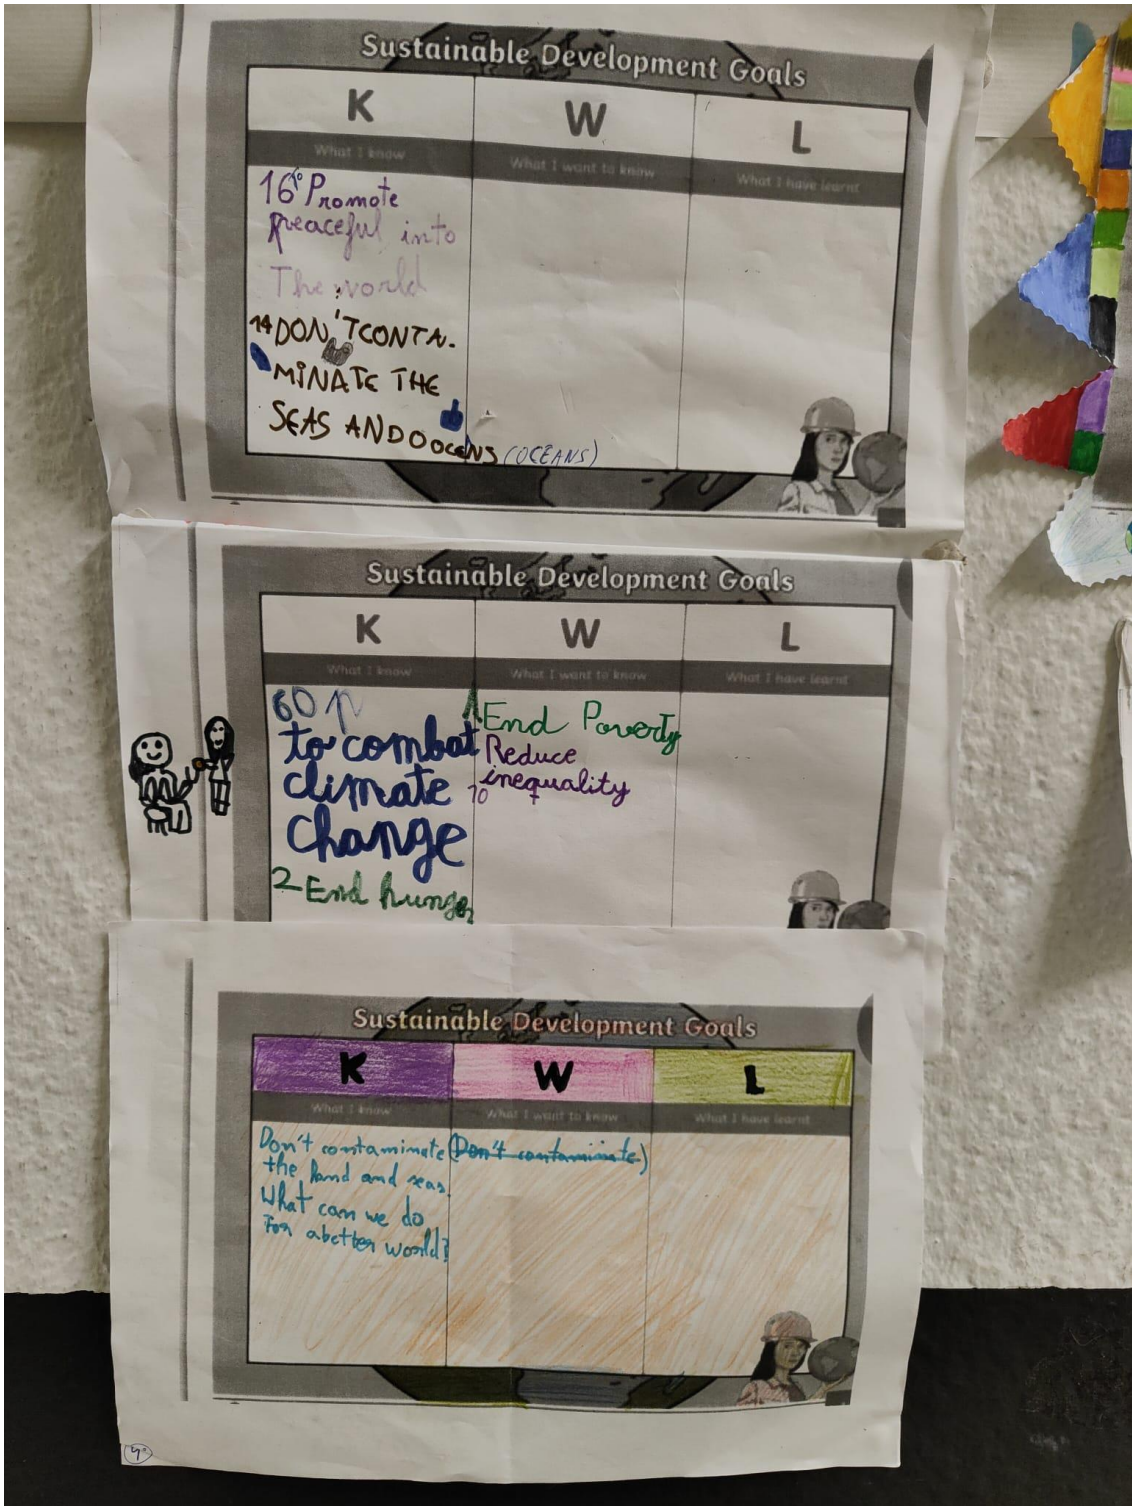 Sustainable Development Goals
K W L
What I know What I want to know What I have learnt
16° Promote
peaceful into
The world
14 DON'T CONTA-
MINATE THE
SEAS AND OOCENS (OCEANS)
Sustainable Development Goals
K W L
What I know What I want to know What I have learnt
to combat
climate
change
2-End hunger
1 End Poverty
Reduce
inequality
10
Sustainable Development Goals
K W L
What I know What I want to know What I have learnt
Don't contaminate
the land and seas.
What can we do
For a better world?
(Don't contaminate)
4°